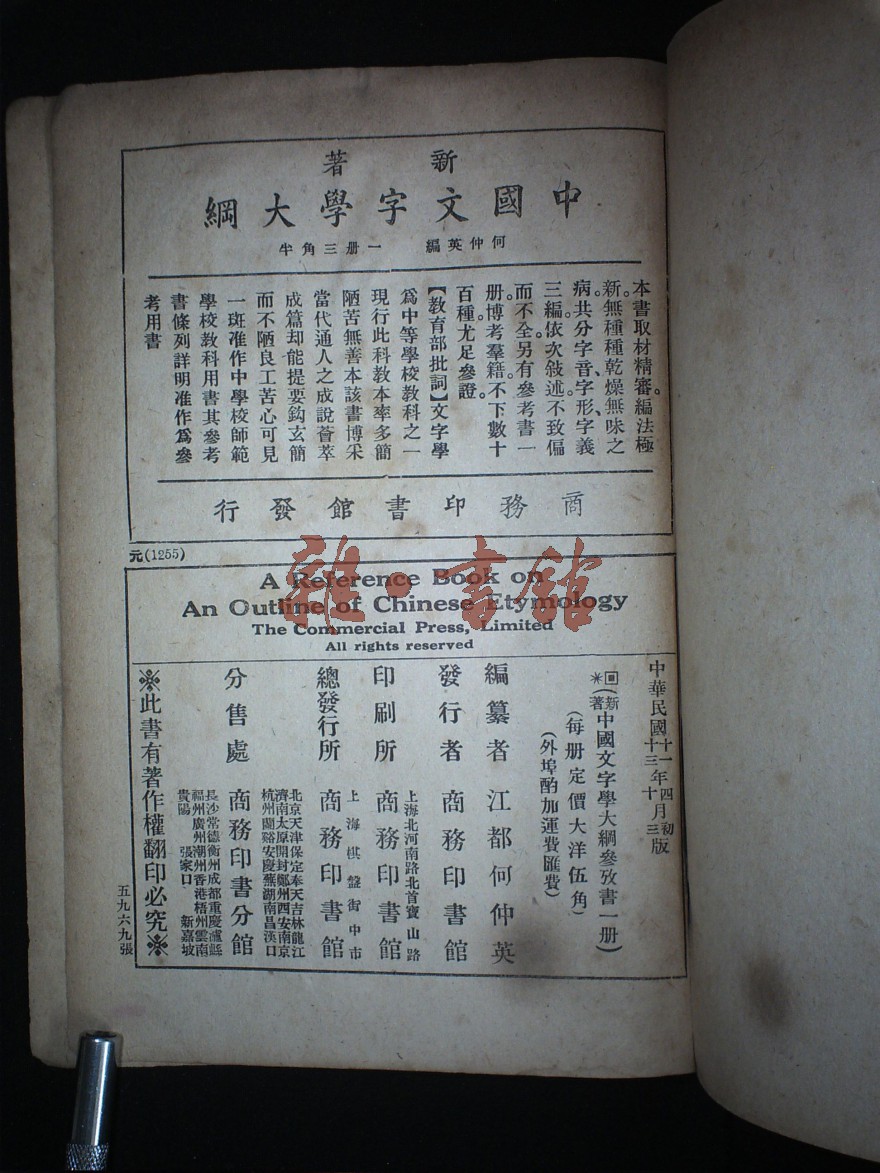 新著
中國文字學大綱
何仲英編 一册三角半
本書取材精審。編法極
新。無種種乾燥無味之
病。共分字音、字形、字義
三編。依次敍述。不致偏
而不全。另有參考書一
册。博考羣籍。不下數十
百種。尤足參證。
【教育部批詞】文字學
爲中等學校教科之一
現行此科教本率多簡
陋苦無善本該書博采
當代通人之成說薈萃
成篇却能提要鈎玄簡
而不陋良工苦心可見
一斑准作中學校師範
學校教科用書其參考
書條列詳明准作爲參
考用書
商務印書館發行
元(1255)
A Reference Book on
An Outline of Chinese Etymology
The Commercial Press, Limited
All rights reserved
中華民國十一年四月初版
十三年十 三版
(新著)中國文字學大綱參攷書一册)
(每册定價大洋伍角)
(外埠酌加運費匯費)
編纂者 江都何仲英
發行者 商務印書館
上海北河南路北首寶山路
印刷所 商務印書館
上海棋盤街中市
總發行所 商務印書館
北京天津保定奉天吉林龍江
濟南太原開封鄭州西安南京
杭州蘭谿安慶蕪湖南昌漢口
分售處 商務印書分館
長沙常德衡州成都重慶瀘縣
福州廣州潮州香港梧州雲南
貴陽 張家口 新嘉坡
※此書有著作權翻印必究※
五九六九張
雜·書館